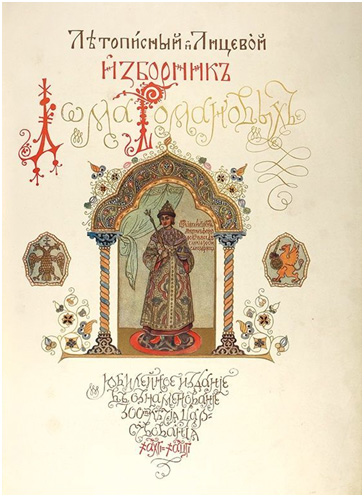 Лѣтописный и Лицевой
Изборникъ
Дома Романовыхъ
Юбилейное изданіе
въ ознаменованіе
300-лѣтія цар-
ствованія